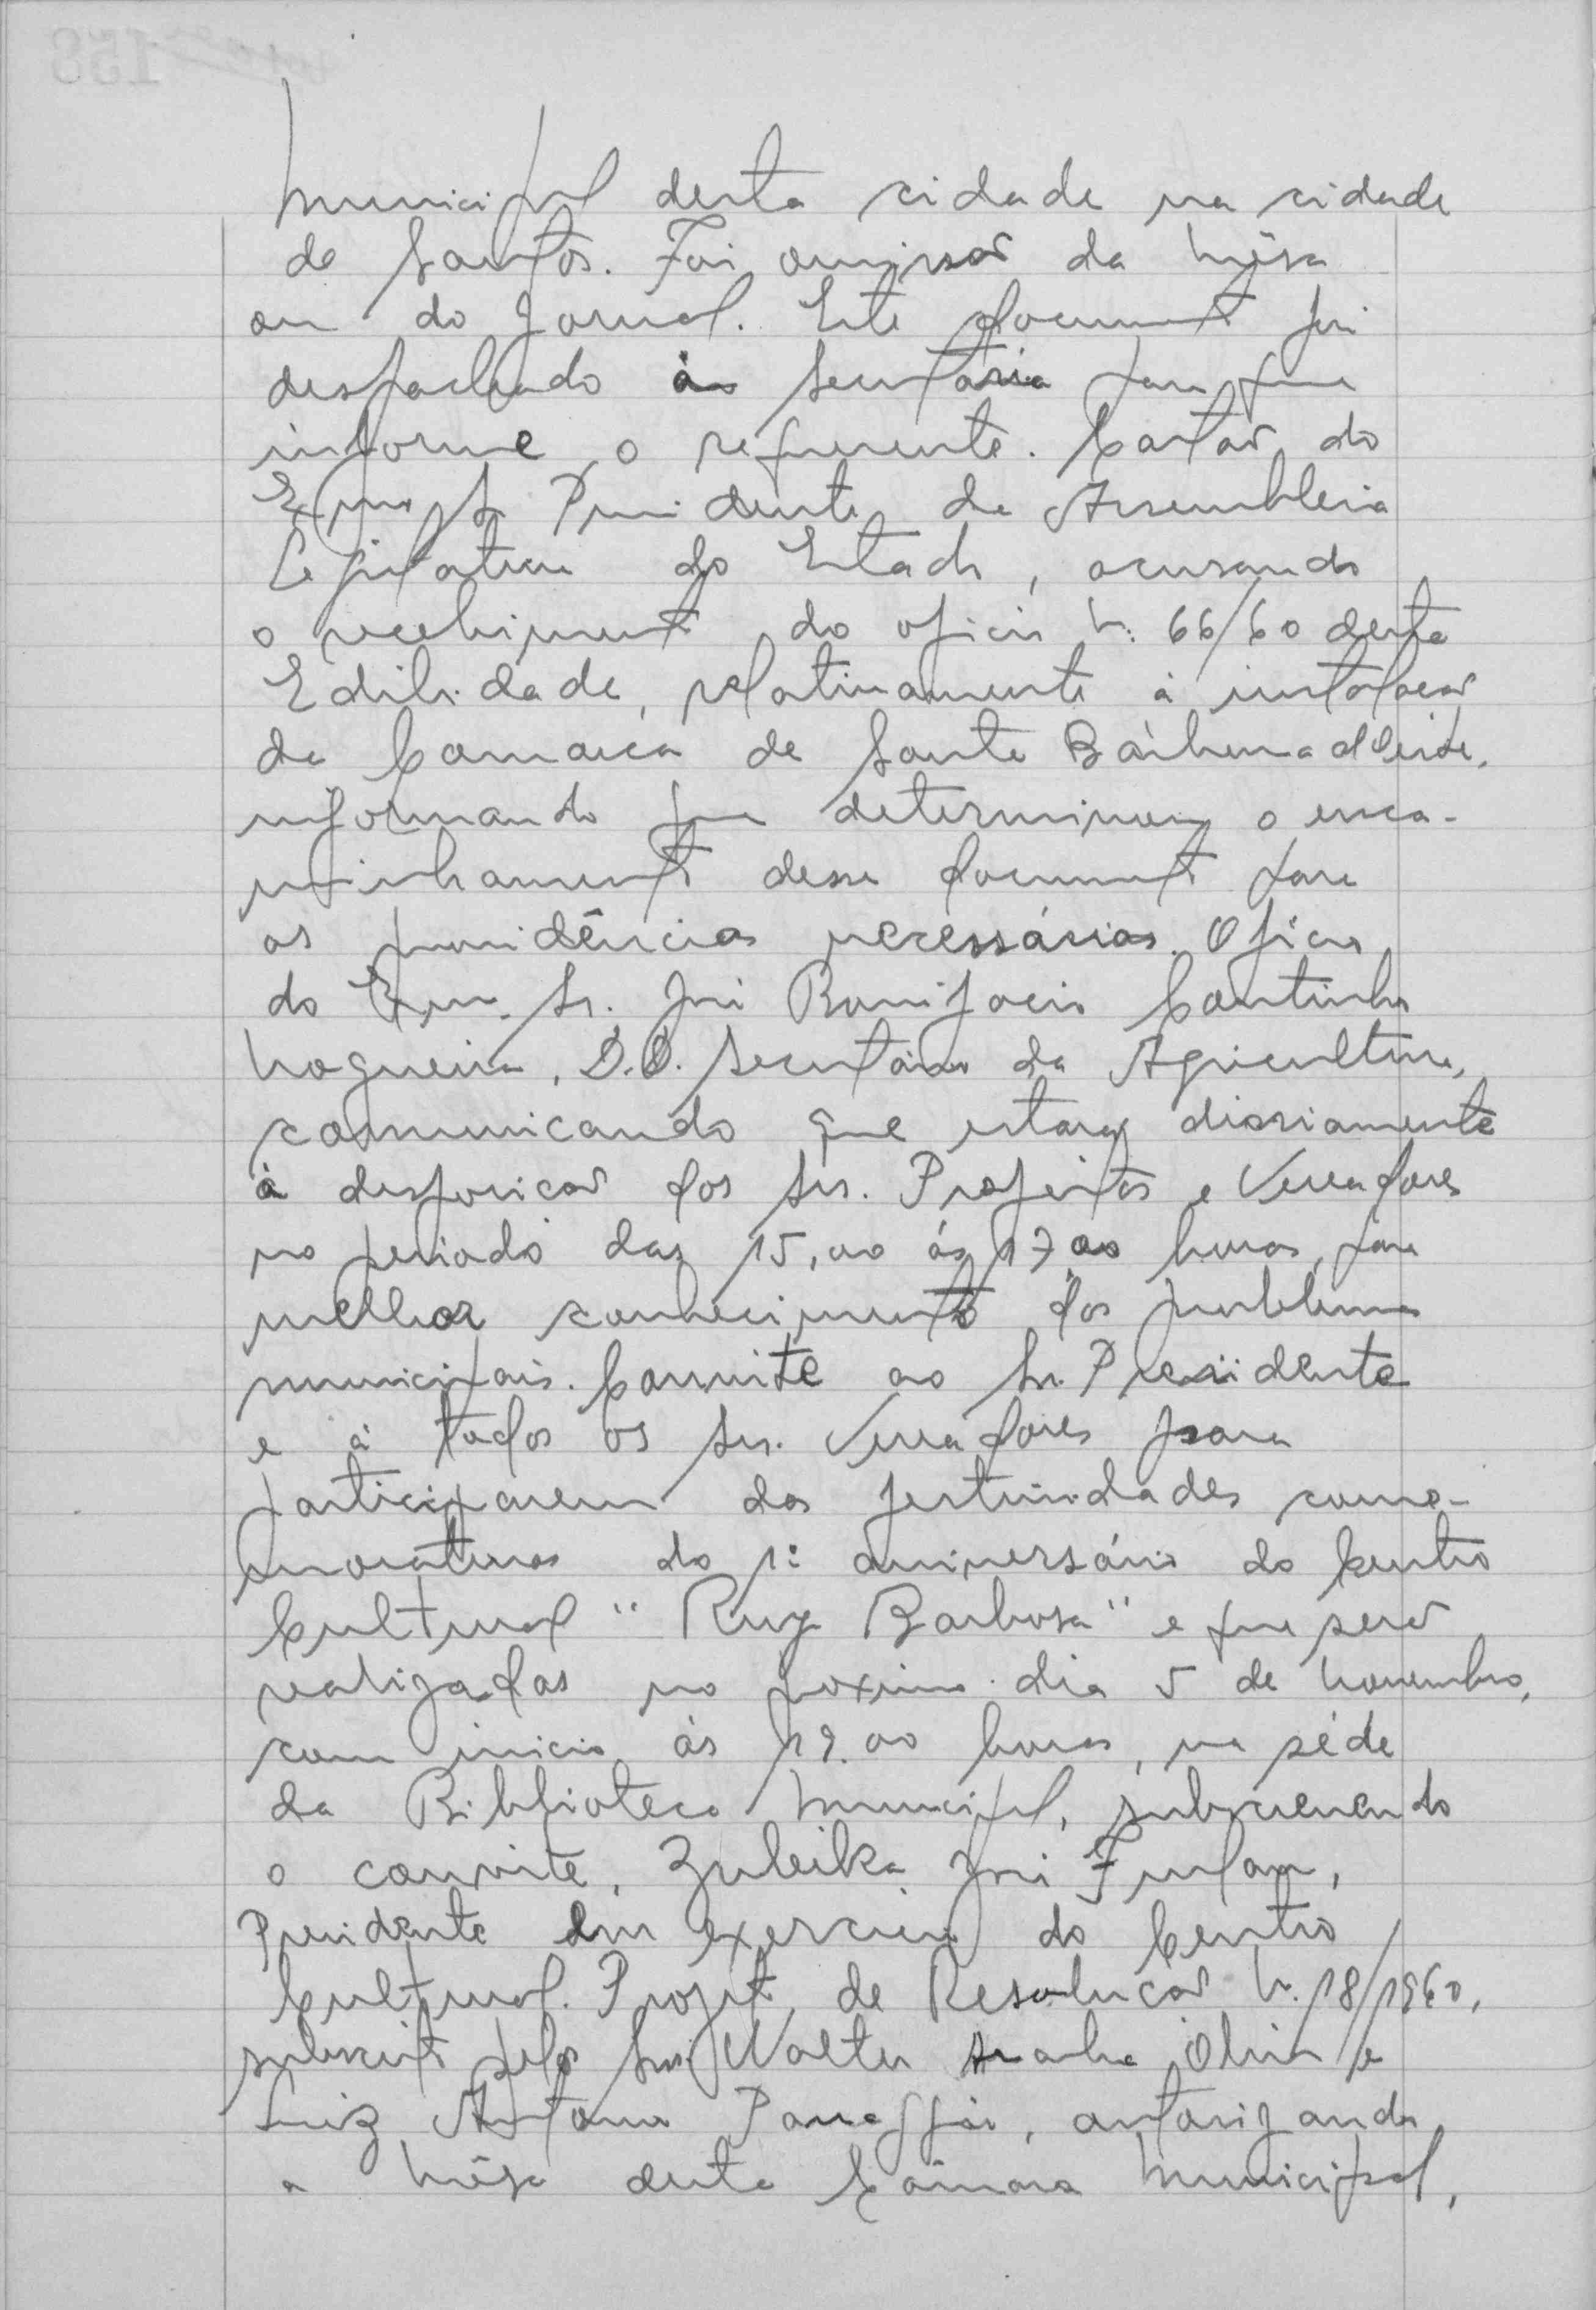 Municipal desta cidade na cidade
de Santos. Foi omissão da Mêsa
ou do Jornal. Este documento foi
despachado à Secretária para que
informe o requerente. Cartão do
Exmo Sr Presidente da Assembleia
Legislativa do Estado, acusando
o recebimento do oficio N. 66/60 desta
Edilidade, relativamente à instalação
da Comarca de Santa Bárbara d'Oeste,
informando que determinou o enca-
minhamento desse documento para
as providências necessárias. Oficio
do Exmo. Sr. José Bonifacio Coutinho
Nogueira, D.D. Secretário da Agricultura,
comunicando que estará diariamente
à disposição dos Srs. Prefeitos e Vereadores
no periodo das 15,00 ás 17,00 horas, para
melhor conhecimento dos problemas
municipais. Convite ao Sr. Presidente
e à todos os Srs. Vereadores para
participarem das festividades come-
morativas do 1º aniversário do Centro
Cultural "Ruy Barbosa" e que serão
realizadas no proximo dia 5 de Novembro,
com inicio ás 19.00 horas, na séde
da Biblioteca Municipal, subscrevendo
o convite, Zuleika José Furlan,
Presidente em exercicio do Centro
Cultural. Projeto de Resolução N. 18/1960,
subscrito pelos Srs. Walter Oliva e
Luiz Antonio Panaggio, autorizando
a Mêsa desta Câmara Municipal,